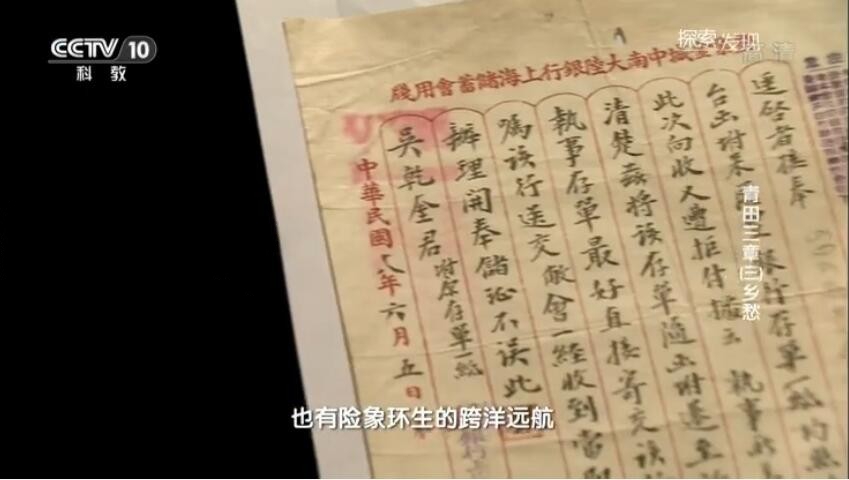 CCTV 10
科教
探索·发现
高清
青田三章(三)乡愁
中南大陸銀行上海儲蓄會用牋
逕啓者接奉
台函附來
銀行存單一紙均照
此次向收又遭拒付
執事
清楚茲將該存單隨函附
執事存單最好直接寄交該
爲該行送交敝會一經收到當即
辦理開奉儲証不誤此
吳乾奎君
附存單一紙
中華民國八年六月五日
也有险象环生的跨洋远航